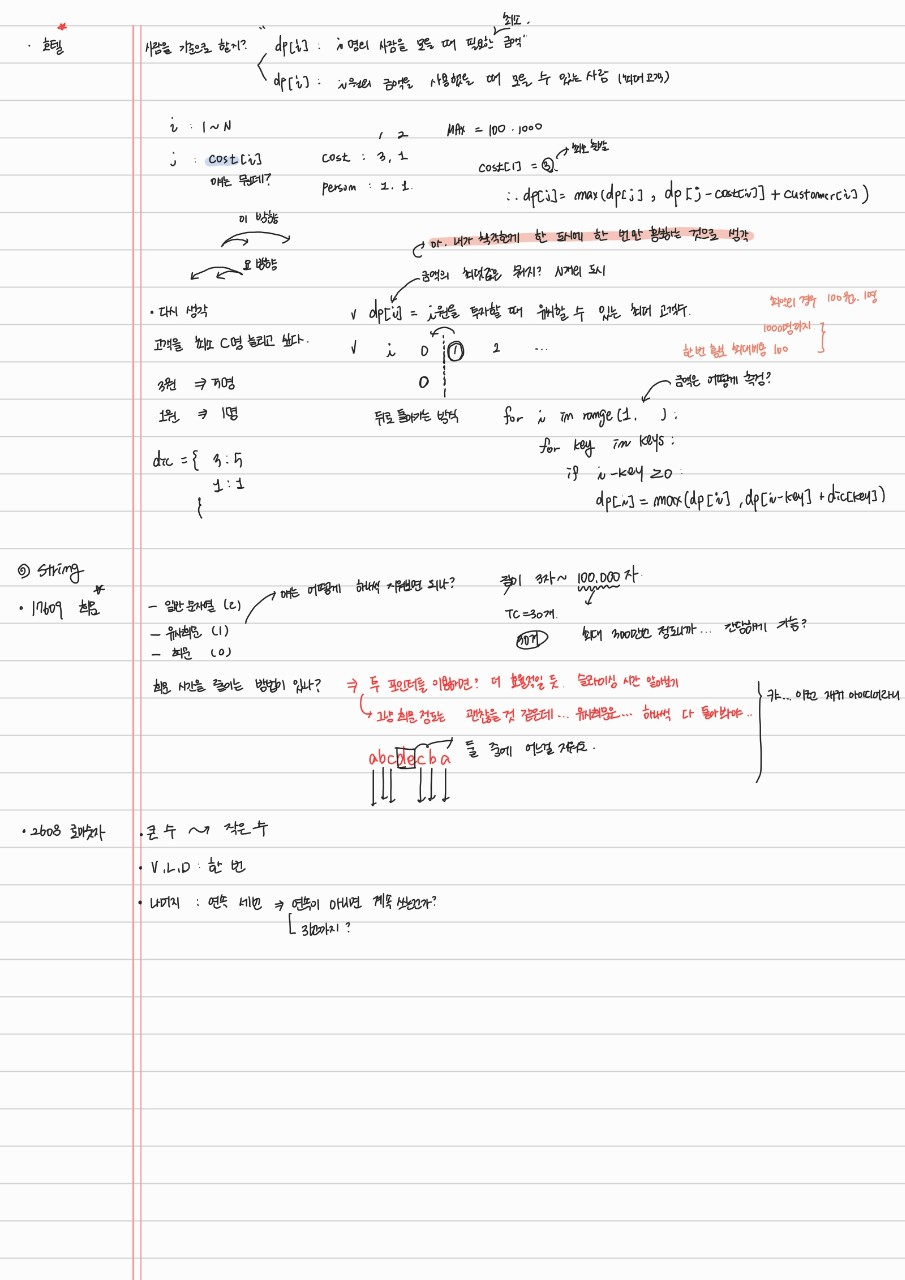 · 호텔
사람을 기준으로 할지?
dp[i] : i명의 사람을 모을 때 필요한 금액"
최소.
dp[i] : i원의 금액을 사용했을 때 모을 수 있는 사람 (최대 고객)
i : 1~N
j : cost[i]
얘는 뭔데?
1 2
cost : 3, 1
person : 1. 1.
MAX = 100·1000
cost[1] = 3
최소 한번
∴ dp[j] = max(dp[j], dp[j-cost[i]] + customer[i])
이 방향
요 방향
아. 내가 착각한게 한 도시에 한 번만 홍보하는 것으로 생각
금액의 최댓값은 뭐지? N개의 도시
· 다시 생각
고객을 최소 C명 늘리고 싶다.
3원 ⇒ 5명
1원 ⇒ 1명
dic = { 3 : 5
1 : 1
}
∨ dp[i] = i원을 투자할 때 유치할 수 있는 최대 고객수.
∨ i 0 1 2 ...
0
뒤로 돌아가는 방식
최악의 경우 100원. 1명
1000명까지
한번 홍보 최대비용 100
금액은 어떻게 측정?
for i in range(1, ) :
for key in keys :
if i-key ≥0 :
dp[i] = max(dp[i], dp[i-key] + dic[key])
◎ String
· 17609 회문
- 일반 문자열 (2)
- 유사회문 (1)
- 회문 (0)
얘는 어떻게 하나씩 지워보면 되나?
길이 3자 ~ 100,000 자.
TC = 30개.
30개
최대 300만번 정도니까... 간단하게 가능?
회문 시간을 줄이는 방법이 있나?
⇒ 두 포인터를 이용하면? 더 효율적일 듯. 슬라이싱 시간 알아보기
그냥 회문 정도는 괜찮을 것 같은데... 유사회문은... 하나씩 다 돌아봐야..
캬... 이런 재귀 아이디어라니
abcdecba
둘 중에 어느걸 지워요.
· 2608 로마숫자
· 큰 수 → 작은 수
· V.L.D : 한 번
· 나머지 : 연속 세번 ⇒ 연속이 아니면 계속 쓰는건가?
3번까지?